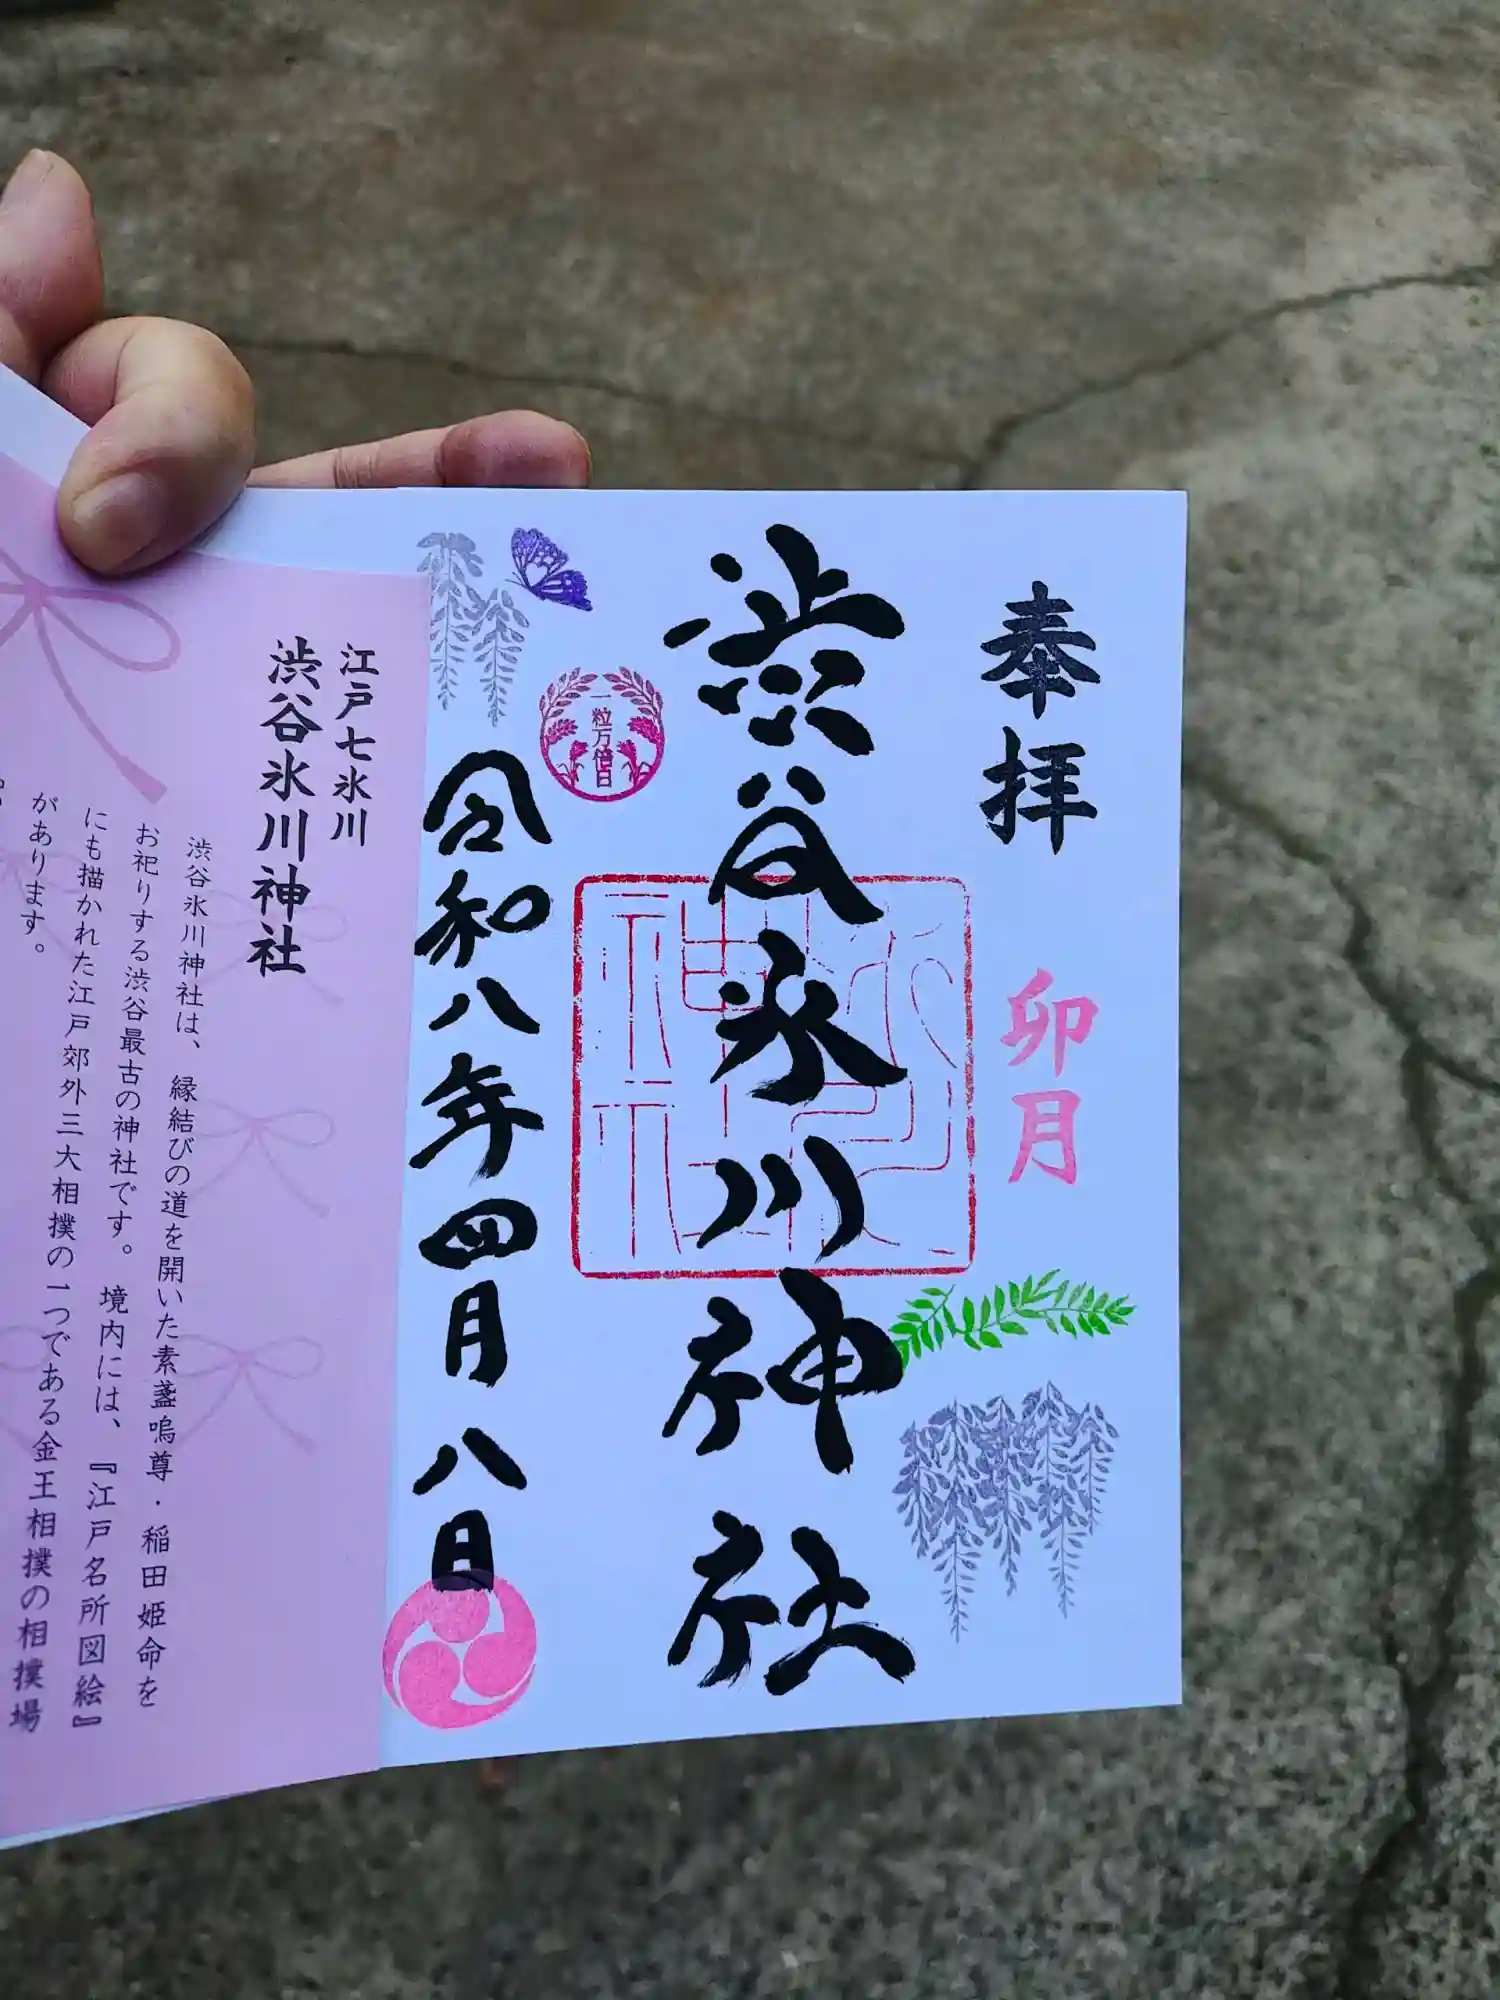 奉拝
卯月
渋谷氷川神社
一粒万倍日
令和八年四月八日
江戸七氷川
渋谷氷川神社
渋谷氷川神社は、縁結びの道を開いた素盞嗚尊・稲田姫命を
お祀りする渋谷最古の神社です。境内には、『江戸名所図絵』
にも描かれた江戸郊外三大相撲の一つである金王相撲の相撲場
があります。